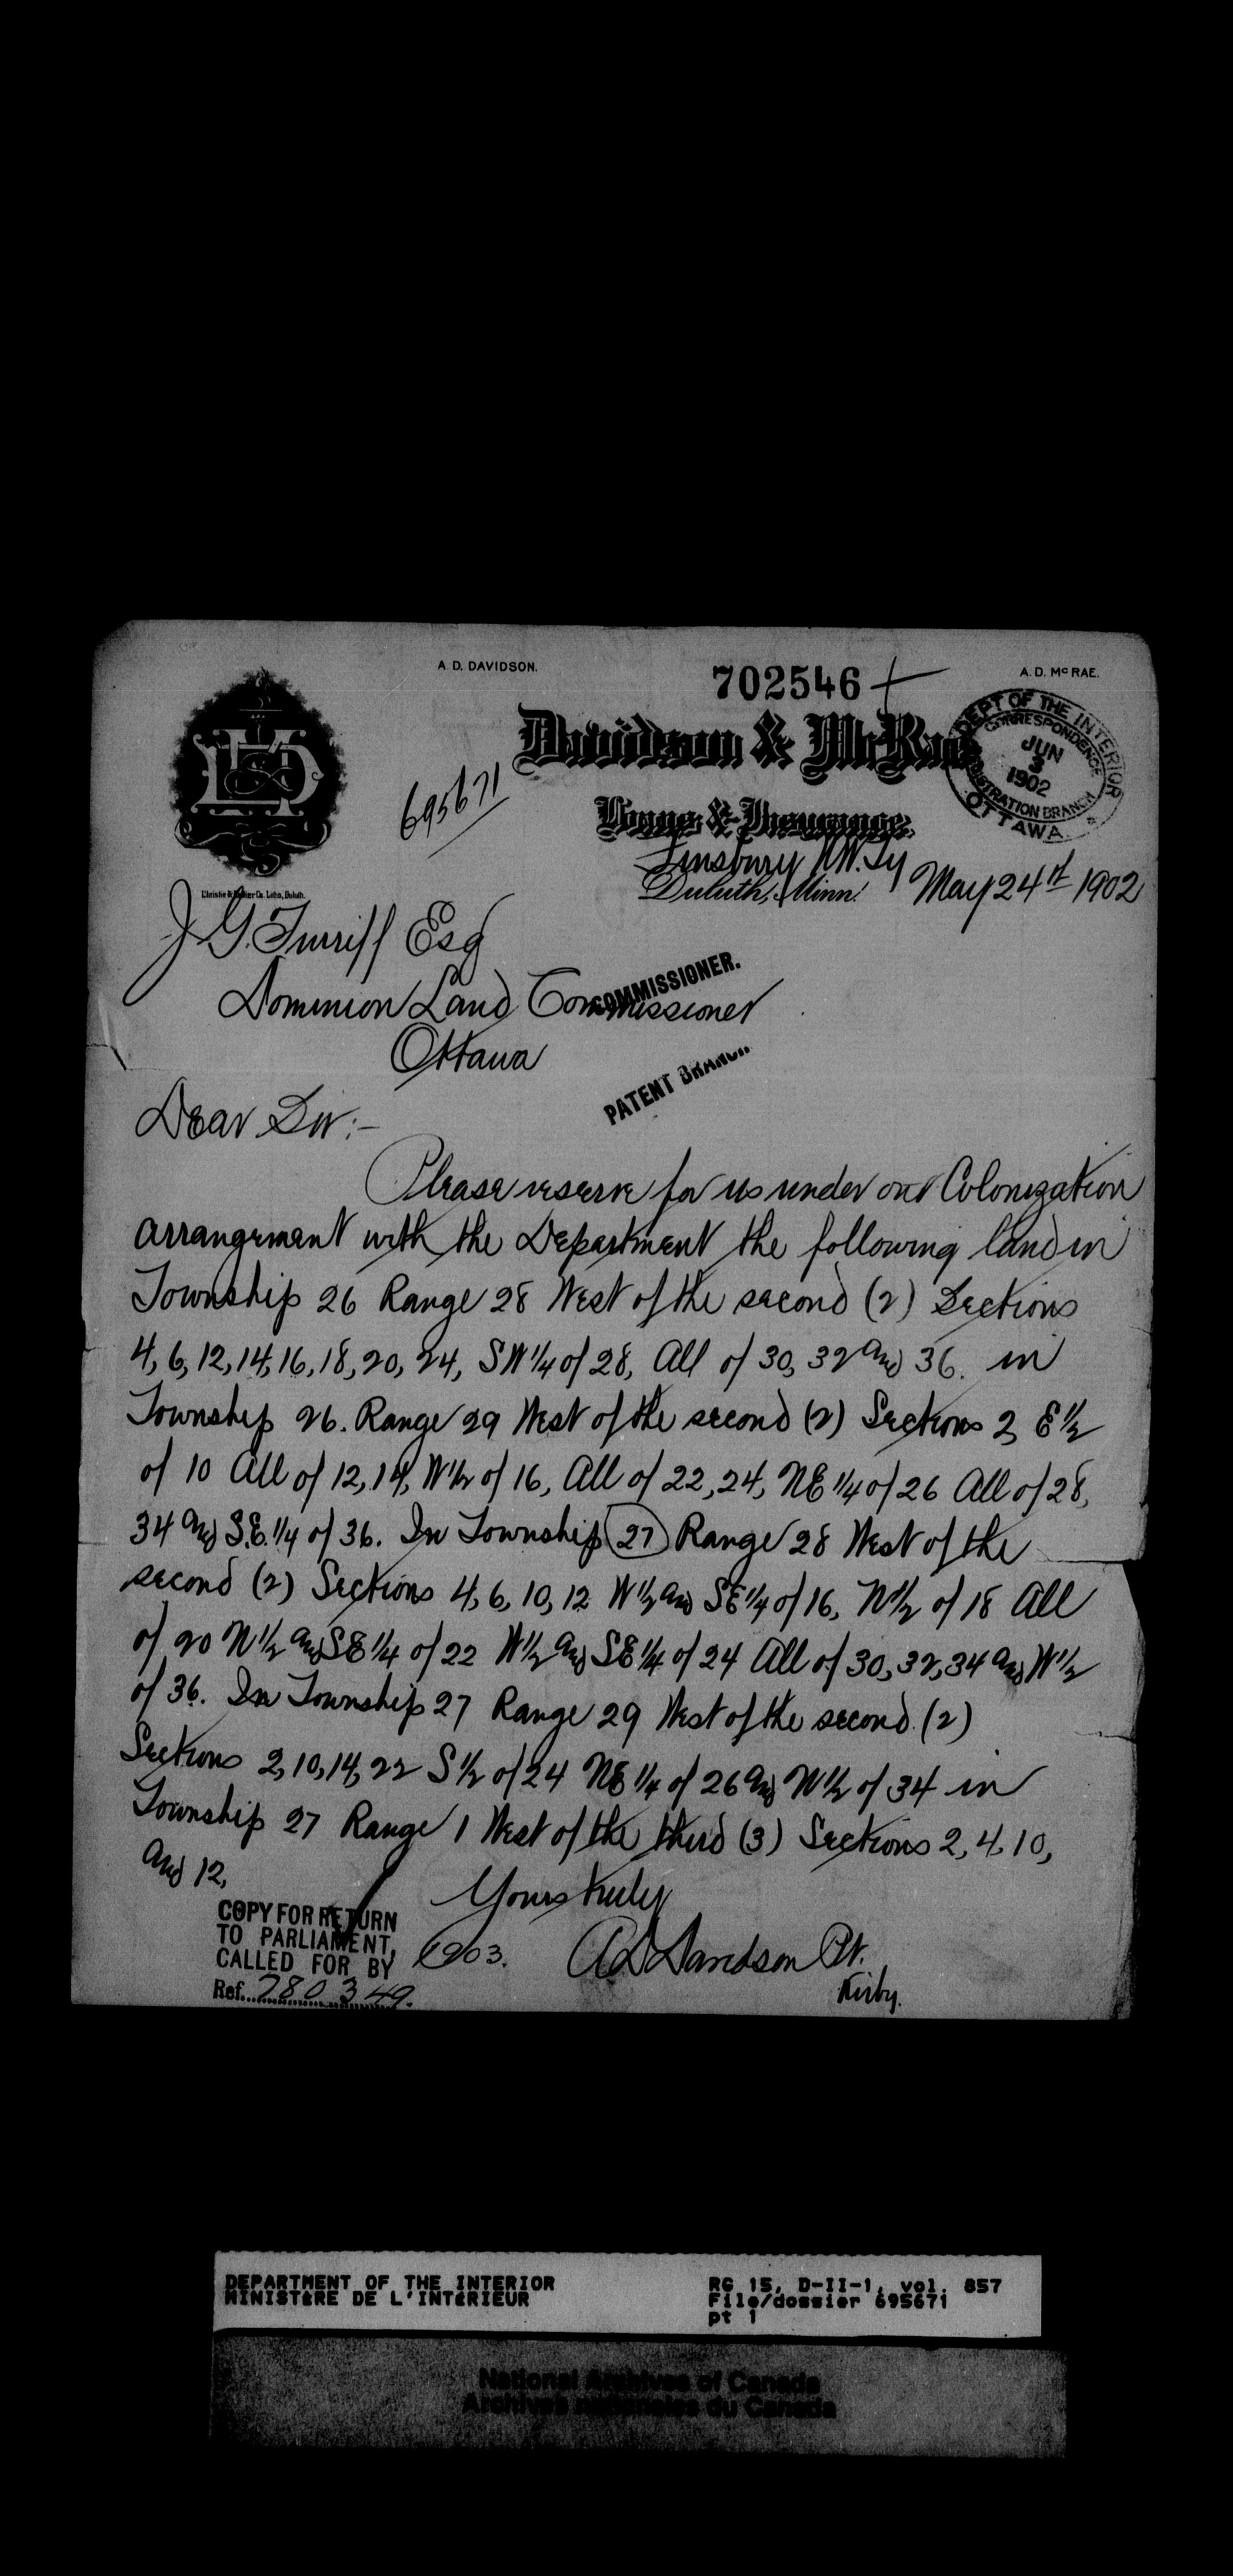 A. D. DAVIDSON.
702546
A. D. McRAE.
Davidson & McRae
Loans & Insurance.
695671
DEPT OF THE INTERIOR
CORRESPONDENCE
JUN
3
1902
REGISTRATION BRANCH
OTTAWA
Duluth, Minn.
May 24th 1902
J. G. Turriff Esq
Dominion Land Commissioner
COMMISSIONER.
Ottawa
PATENT BRANCH
Dear Sir:-
Please reserve for us under our Colonization
arrangement with the Department the following land in
Township 26 Range 28 West of the second (2) Sections
4, 6, 12, 14, 16, 18, 20, 24, SW 1/4 of 28, All of 30, 32 and 36. in
Township 26. Range 29 West of the second (2) Sections 2, E 1/2
of 10 All of 12, 14, W 1/2 of 16, All of 22, 24, NE 1/4 of 26 All of 28,
34 and S.E. 1/4 of 36. In Township 27 Range 28 West of the
second (2) Sections 4, 6, 10, 12 W 1/2 and SE 1/4 of 16, N 1/2 of 18 All
of 20 N 1/2 and SE 1/4 of 22 W 1/2 and SE 1/4 of 24 All of 30, 32, 34 and W 1/2
of 36. In Township 27 Range 29 West of the second (2)
Sections 2, 10, 14, 22 S 1/2 of 24 NE 1/4 of 26 and W 1/2 of 34 in
Township 27 Range 1 West of the third (3) Sections 2, 4, 10,
and 12,
Yours truly
A D Davidson Pr.
Kirby.
COPY FOR RETURN
TO PARLIAMENT,
CALLED FOR BY
1903.
Ref. 780349.
DEPARTMENT OF THE INTERIOR
MINISTÈRE DE L'INTÉRIEUR
RG 15, D-II-1, vol. 857
File/dossier 695671
pt 1
National Archives of Canada
Archives nationales du Canada